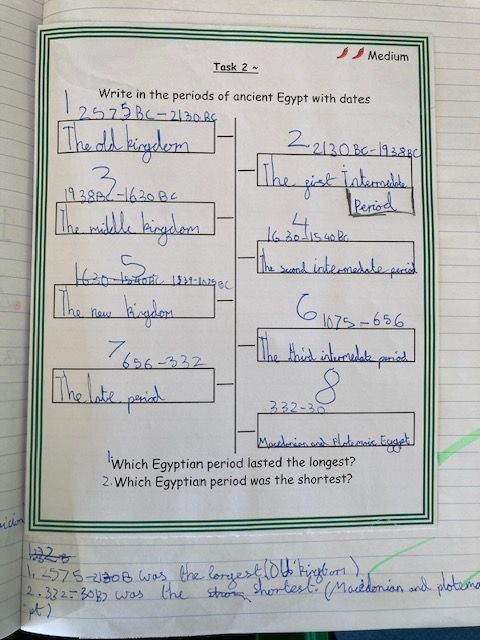 Medium
Task 2 ~
Write in the periods of ancient Egypt with dates
1 2575BC-2130BC
The old kingdom
2 2130BC-1938BC
The first Intermedate
Period
3
1938BC-1630BC
The middle kingdom
4
1630-1540BC
The second intermedate period
5
1630-1540BC 1539-1075BC
The new kingdom
6 1075-656
The third intermedate period
7 656-332
The late period
8
332-30
Macedonian and Ptolemaic Egypt
1. Which Egyptian period lasted the longest?
2. Which Egyptian period was the shortest?
1. 2575-2130B was the longest (Old kingdom)
2. 332-30B was the shortest. (Macedonian and ptolema
pt)